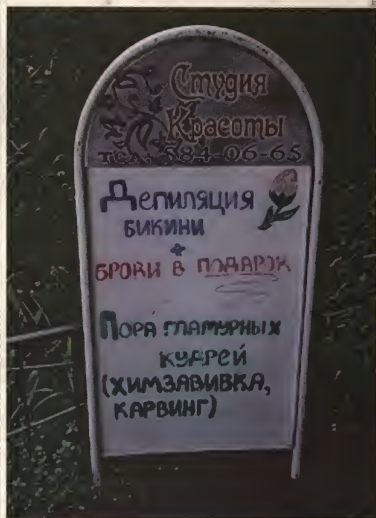 Студия
Красоты
тел. 584-06-65
Депиляция
бикини
+
БРОВИ В ПОДАРОК
Пора гламурных
кудрей
(ХИМЗАВИВКА,
КАРВИНГ)